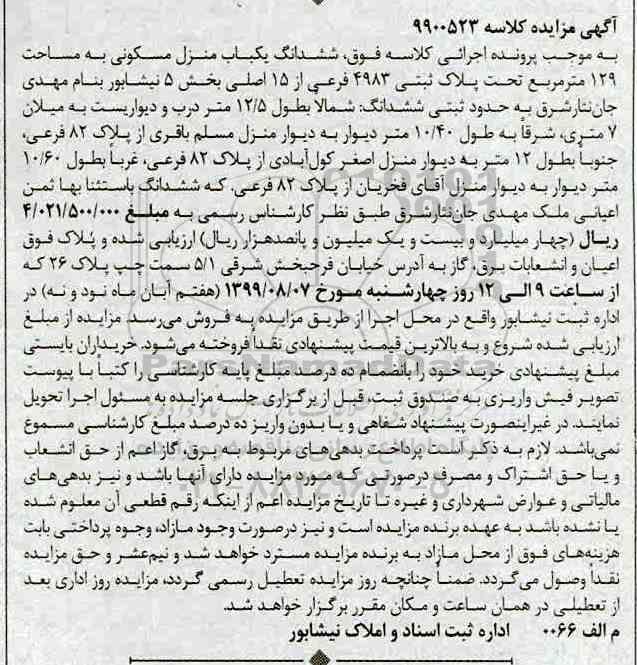 آگهی مزایده کلاسه ۹۹۰۰۵۲۳
به موجب پرونده اجرائی کلاسه فوق، ششدانگ یکباب منزل مسکونی به مساحت
۱۲۹ مترمربع تحت پلاک ثبتی ۴۹۸۳ فرعی از ۱۵ اصلی بخش ۵ نیشابور بنام مهدی
جان‌نثارشرق به حدود ثبتی ششدانگ: شمالاً بطول ۱۲/۵ متر درب و دیواریست به میلان
۷ متری، شرقاً به طول ۱۰/۴۰ متر دیوار به دیوار منزل مسلم باقری از پلاک ۸۲ فرعی،
جنوباً بطول ۱۲ متر به دیوار منزل اصغر کول‌آبادی از پلاک ۸۲ فرعی، غرباً بطول ۱۰/۶۰
متر دیوار به دیوار منزل آقای فخریان از پلاک ۸۲ فرعی. که ششدانگ باستثنا بها ثمن
اعیانی ملک مهدی جان‌نثارشرق طبق نظر کارشناس رسمی به مبلغ ۴/۰۲۱/۵۰۰/۰۰۰
ریال (چهار میلیارد و بیست و یک میلیون و پانصدهزار ریال) ارزیابی شده و پلاک فوق
اعیان و انشعابات برق، گاز به آدرس خیابان فرحبخش شرقی ۵/۱ سمت چپ پلاک ۲۶ که
از ساعت ۹ الی ۱۲ روز چهارشنبه مورخ ۱۳۹۹/۰۸/۰۷ (هفتم آبان ماه نود و نه) در
اداره ثبت نیشابور واقع در محل اجرا از طریق مزایده به فروش می‌رسد. مزایده از مبلغ
ارزیابی شده شروع و به بالاترین قیمت پیشنهادی نقداً فروخته می‌شود. خریداران بایستی
مبلغ پیشنهادی خرید خود را بانضمام ده درصد مبلغ پایه کارشناسی را کتباً با پیوست
تصویر فیش واریزی به صندوق ثبت، قبل از برگزاری جلسه مزایده به مسئول اجرا تحویل
نمایند. در غیراینصورت پیشنهاد شفاهی و یا بدون واریز ده درصد مبلغ کارشناسی مسموع
نمی‌باشد. لازم به ذکر است پرداخت بدهی‌های مربوط به برق، گاز اعم از حق انشعاب
و یا حق اشتراک و مصرف درصورتی که مورد مزایده دارای آنها باشد و نیز بدهی‌های
مالیاتی و عوارض شهرداری و غیره تا تاریخ مزایده اعم از اینکه رقم قطعی آن معلوم شده
یا نشده باشد به عهده برنده مزایده است و نیز درصورت وجود مازاد، وجوه پرداختی بابت
هزینه‌های فوق از محل مازاد به برنده مزایده مسترد خواهد شد و نیم‌عشر و حق مزایده
نقداً وصول می‌گردد. ضمناً چنانچه روز مزایده تعطیل رسمی گردد، مزایده روز اداری بعد
از تعطیلی در همان ساعت و مکان مقرر برگزار خواهد شد.
م الف ۰۰۶۶ اداره ثبت اسناد و املاک نیشابور
ParsNamadData